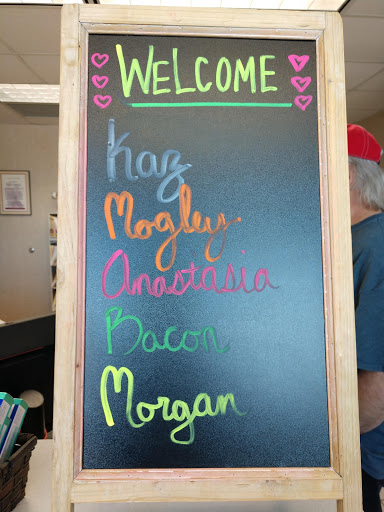 WELCOME
Kaz
Mogley
Anastasia
Bacon
Morgan